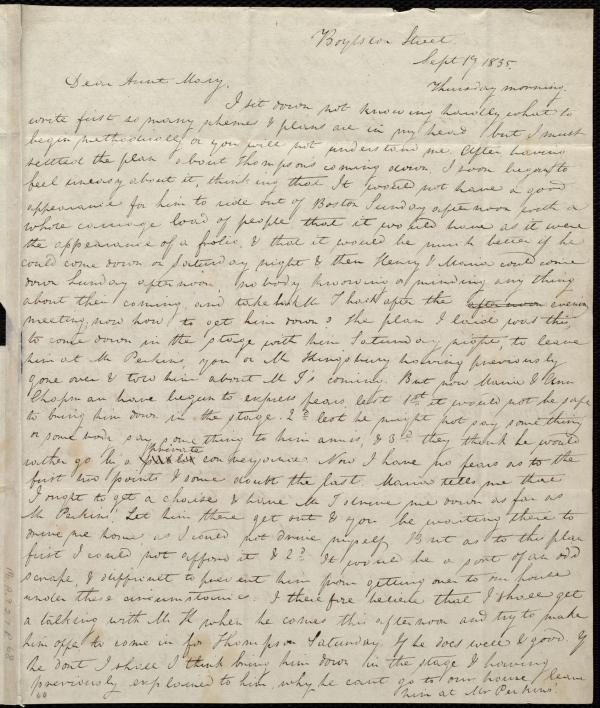 Boylston Street.
Sept 17 1835.
Thursday morning.
Dear Aunt Mary,
I set down not knowing hardly what to
write first so many schemes & plans are in my head but I must
begin methodically or you will not understand me. After having
settled the plan about Thompson's coming down I soon began to
feel uneasy about it, thinking that It would not have a good
appearance for him to ride out of Boston Sunday afternoon with a
whole carriage load of people that it would have as it were
the appearance of a frolic, & that it would be much better if he
could come down on Saturday night & then Henry & Maria could come
down Sunday afternoon nobody knowing or minding any thing
about their coming, and take back Mr T half after the afternoon evening
meeting; now how to get him down? the plan I laid was this,
to come down in the stage with him Saturday night, to leave
him at Mr Perkins, you or Mr Kingsbury having previously
gone over & told him about Mr T's coming. But now Maria & Ann
Chapman have begun to express fears lest 1st it would not be safe
to bring him down in the stage. 2d lest he might not say something
or some body say something to him amiss, & 3d they think he would
rather go by a private conveyance. Now I have no fears as to the
first two points & some doubt the last. Maria tells me that
I ought to get a chaise & have Mr T drive me down as far as
Mr Perkins'. Let him there get out & you be waiting there to
drive me home, as I could not drive myself. But as to this plan
first I could not afford it & 2d It would be a sort of an odd
scrape, & difficult to prevent him from getting over to our house
under these circumstances. I therefore believe that I shall get
a talking with Mr K when he comes this afternoon and try to make
him offer to come in for Thompson Saturday. If he does well & good. If
he dont I shall I think bring him down in the stage & having
previously explained to him, why he cant go to our house leave
him at Mr Perkins'.